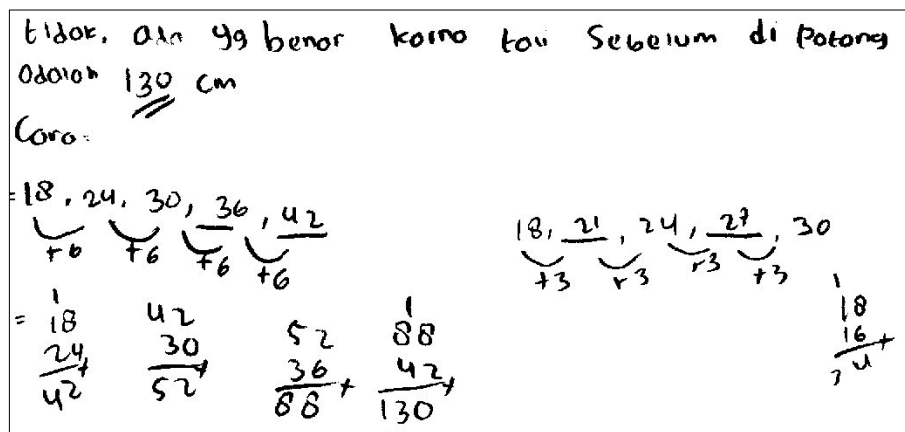 tidak, ada yg benar karna tali Sebelum di Potong
adalah 130 cm
Cara:
= 18, 24, 30, 36, 42
+6 +6 +6 +6
18, 21, 24, 27, 30
+3 +3 +3 +3
= 1 18 24 + 42
42 30 + 52
52 36 + 88
1 88 42 + 130
1 18 16 + 34